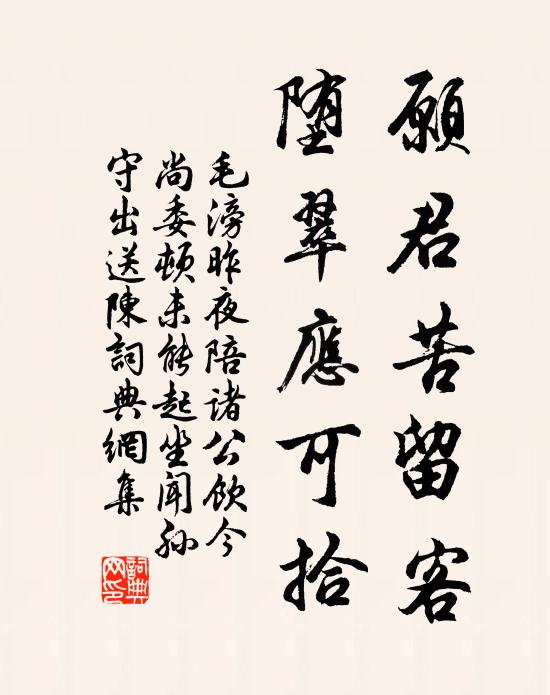 願君苦留客
堕翠應可拾
毛滂昨夜陪諸公飲今
尚委頓未能起坐聞孙
守出送陳詞典網集
詞典
网印